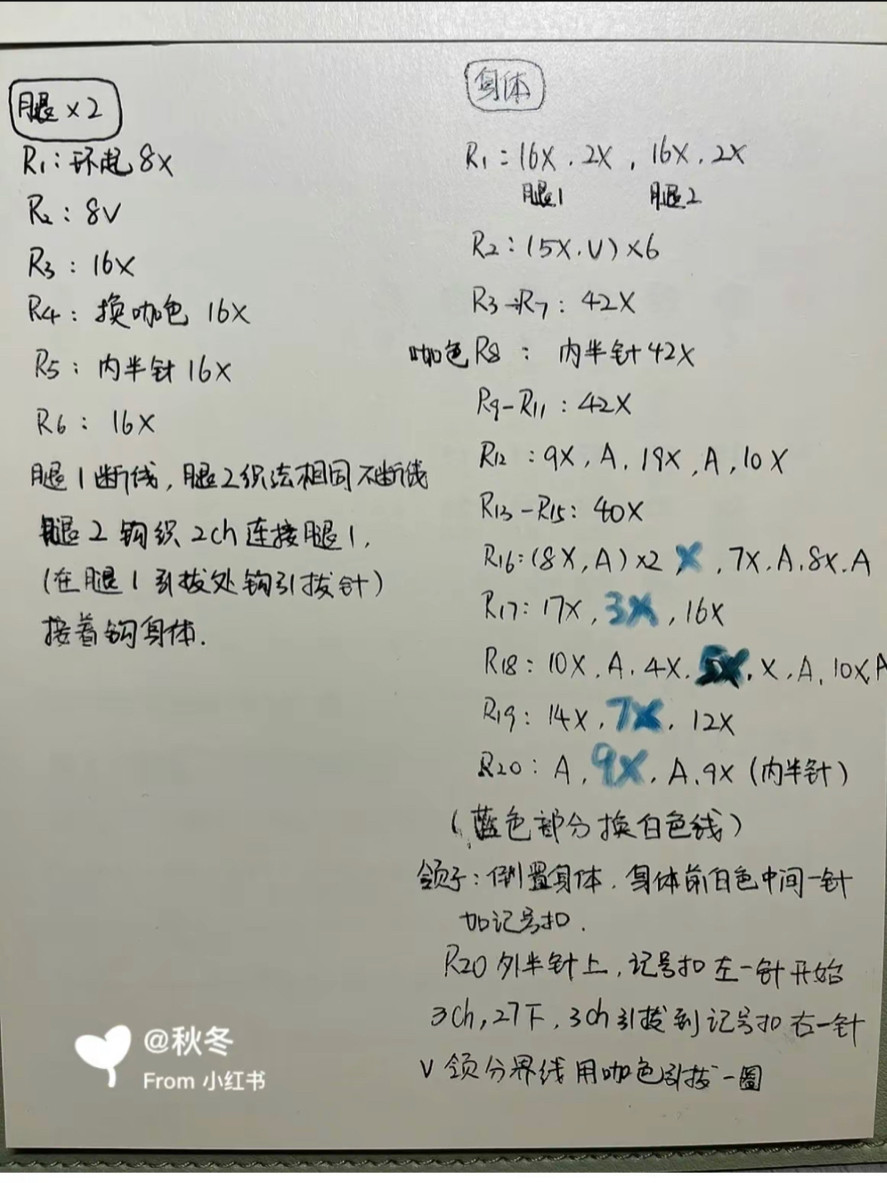 腿×2
R1：环起8X
R2：8V
R3：16X
R4：换咖色 16X
R5：内半针16X
R6：16X
腿1断线，腿2织法相同不断线
腿2钩织2ch连接腿1，
（在腿1引拔处钩引拔针）
接着钩身体.
身体
R1：16X．2X，16X．2X
腿1 腿2
R2：（5X．V）×6
R3-R7：42X
咖色R8：内半针42X
R9-R11：42X
R12：9X，A．19X，A，10X
R13-R15：40X
R16：（8X，A）×2 X，7X．A．8X．A
R17：17X，3X，16X
R18：10X．A．4X．5X．X．A．10X．A
R19：14X，7X．12X
R20：A，9X，A．9X（内半针）
（蓝色部分换白色线）
领子：倒置身体．身体前白色中间一针
加记号扣．
R20外半针上，记号扣左一针开始
3ch，27下，3ch引拔到记号扣右一针
V领分界线用咖色引拔一圈
@秋冬
From 小红书